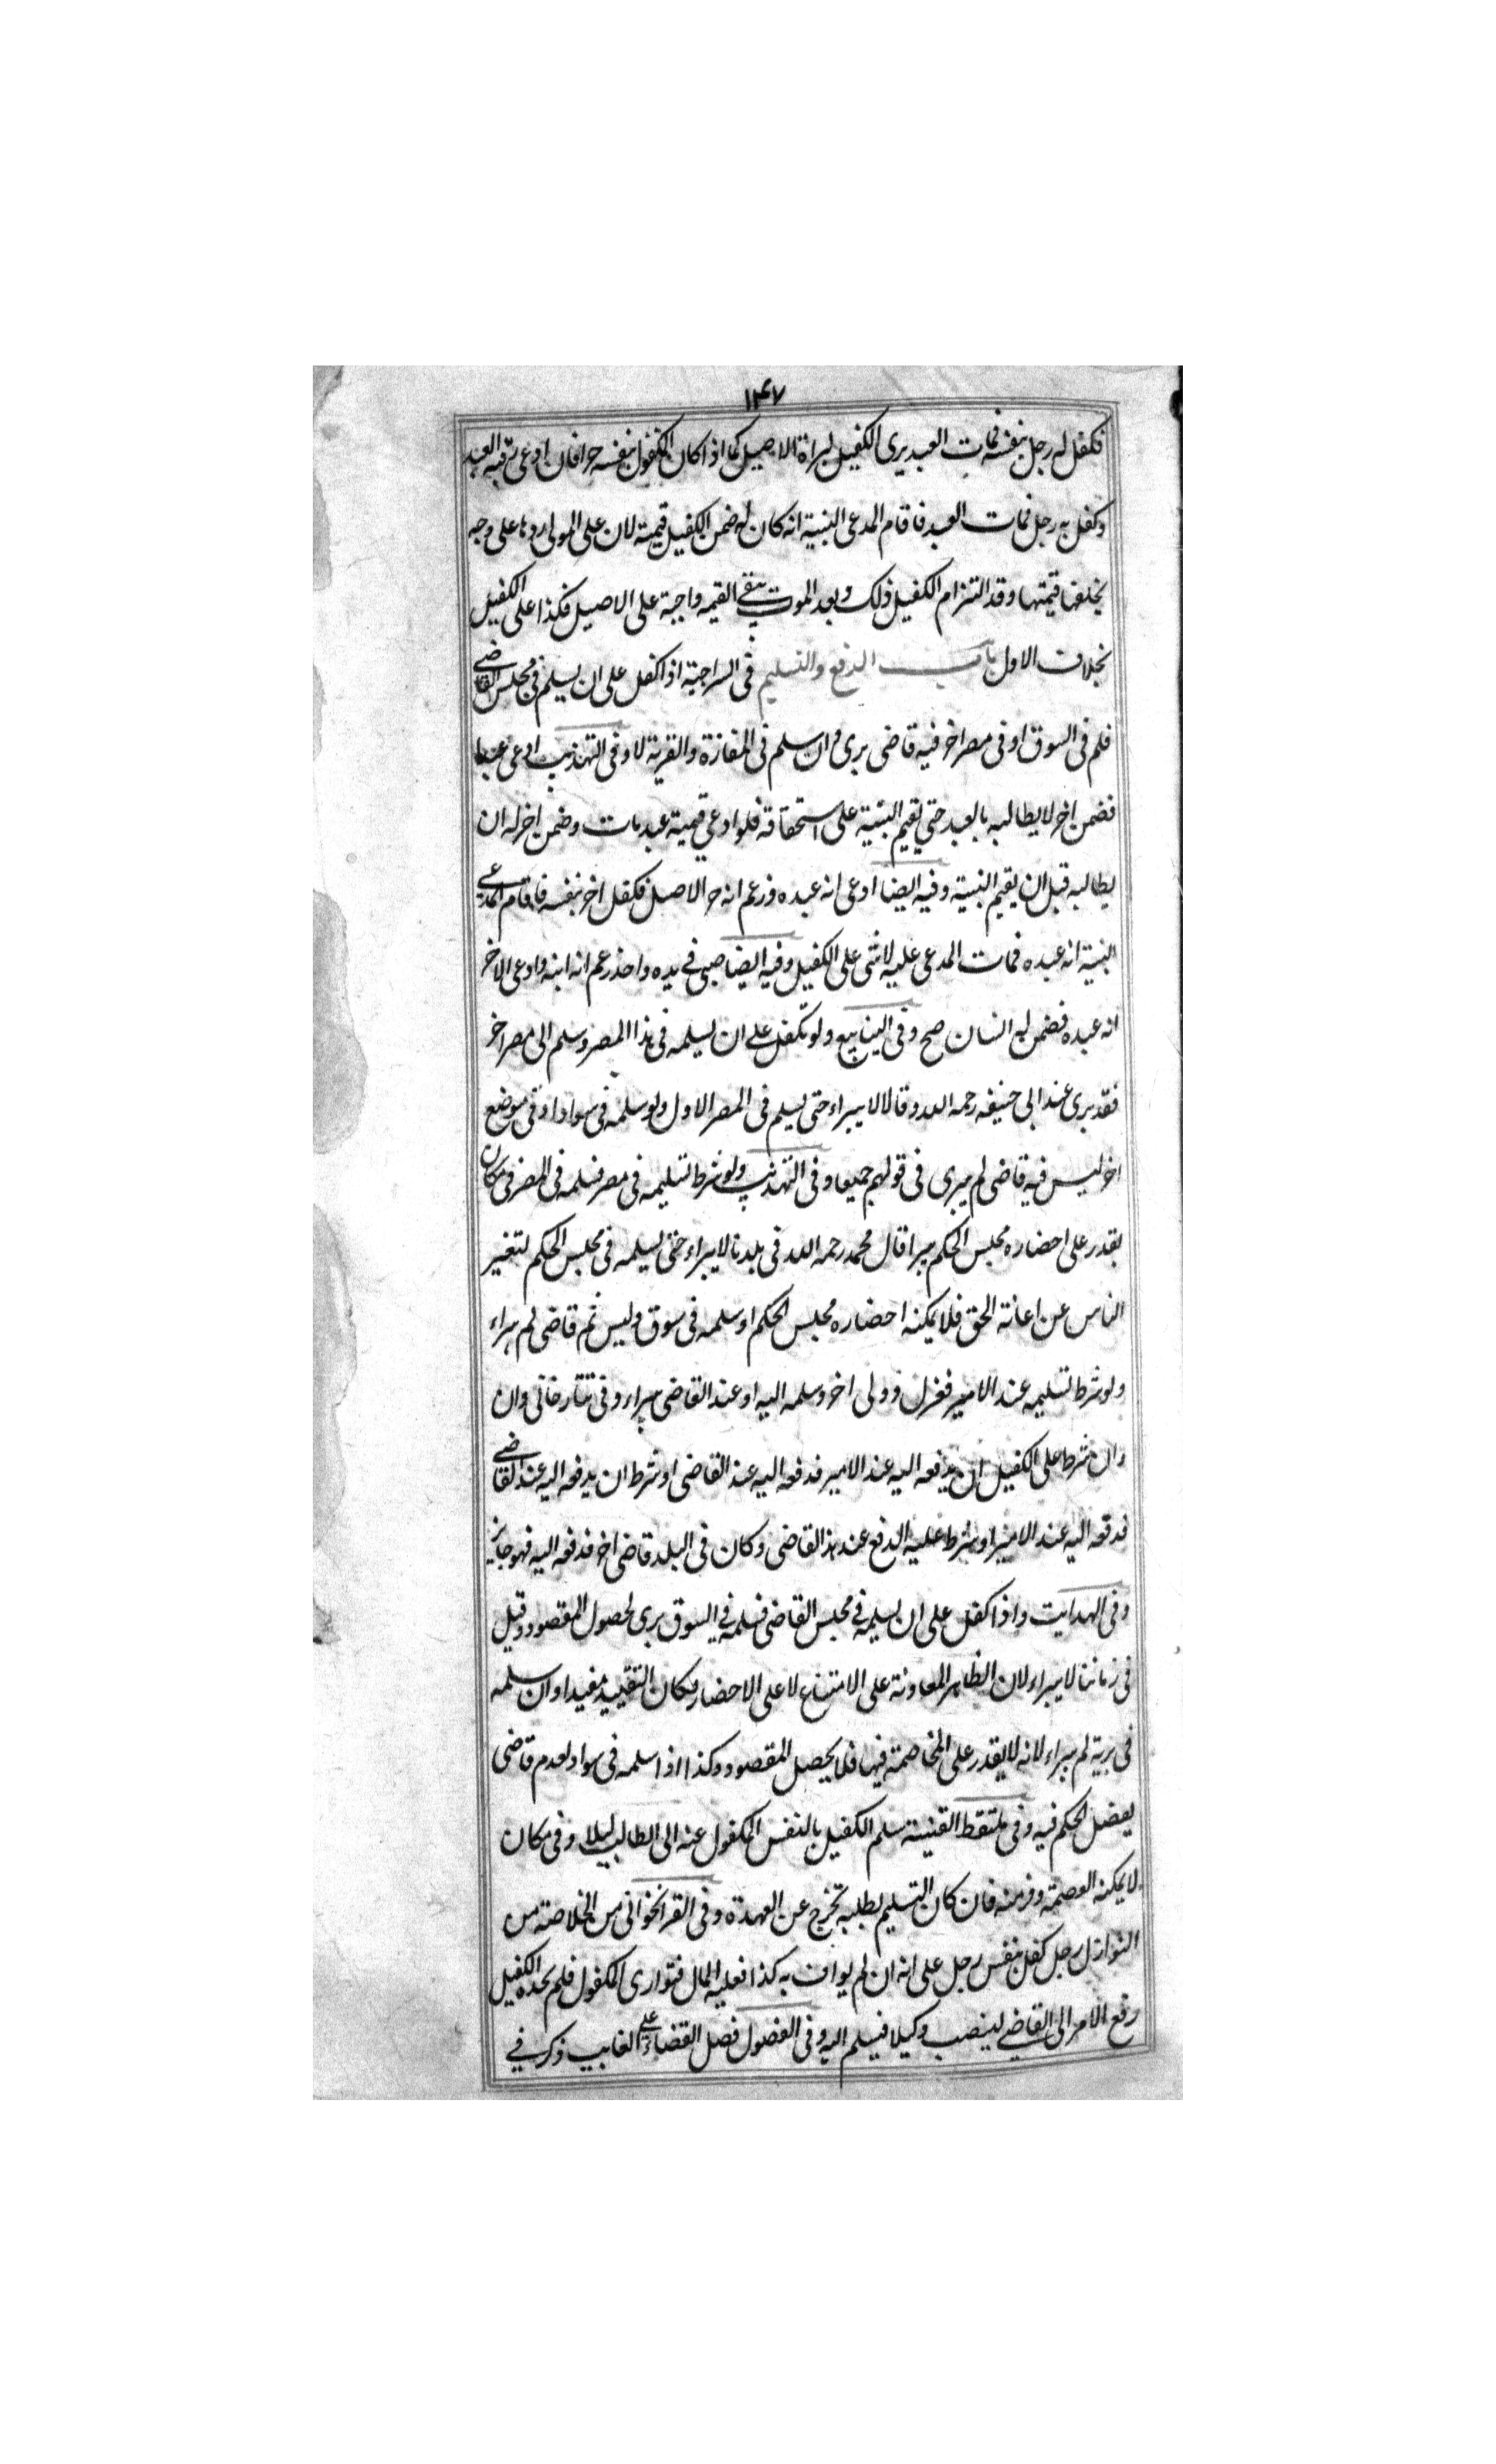 ١٤٧
فكفل له رجل بنفسه فمات العبد برى الكفيل لبراة الاصيل كما اذا كان المكفول بنفسه حرا فان ادعى رقبة العبد
وكفل به رجل فمات العبد فاقام المدعى البنية انه كان له ضمن الكفيل قيمته لان على المولى ردها على وجه
يخلفها قيمتها وقد التزام الكفيل ذلك وبعد الموت يبقى القيمه واجبة على الاصيل فكذا على الكفيل
بخلاف الاول باب الدفع والتسليم فى السراجية اذا كفل على ان يسلم فى مجلس القاضى
فلم فى السوق او فى مصر اخر فيه قاضى برى وان سلم فى المفازة والقرية لا وفى التهذيب ادعى عبدا
فضمن اخر لا يطالبه بالعبد حتى يقيم البنية على استحقاقه فلو ادعى قيمية عبد مات وضمن اخر له ان
يطالبه قبل ان يقيم البنية وفيه ايضا ادعى انه عبده فزعم انه حر الاصل فكفل اخر بنفسه فاقام المدعى
البنية انه عبده فمات المدعى عليه لا شى على الكفيل وفيه ايضا صبى فى يده واحد زعم انه ابنه وادعى الاخر
انه عبده فضمن له انسان صح وفى الينابيع ولو تكفل على ان يسلمه فى هذا المصر وسلم الى مصر اخر
فقد برى عند ابى حنيفه رحمه الله وقالا لا يبراء حتى يسلم فى المصر الاول ولو سلمه فى سواد او فى موضع
اخر ليس فيه قاضى لم يبرى فى قولهم جميعا وفى التهذيب ولو شرط تسليمه فى مصر فسلمه فى المصر فى مكان
يقدر على احضاره مجلس الحكم يبرا قال محمد رحمه الله فى بلدنا لا يبراء حتى يسلمه فى مجلس الحكم لتغير
الناس عن اعانة الحق فلا يمكنه احضاره مجلس الحكم او سلمه فى سوق وليس ثم قاضى لم يبراء
ولو شرط تسليمه عند الامير فعزل وولى اخر وسلمه اليه او عند القاضى يبراء وفى تتارخانى وان
وان شرط على الكفيل ان يدفعه اليه عند الامير فدفعه اليه عند القاضى او شرط ان يدفعه اليه عند القاضى
فدفعه اليه عند الامير او شرط عليه الدفع عند هذا القاضى وكان فى البلد قاضى اخر فدفعه اليه فهو جايز
وفى الهدايت واذا كفل على ان يسلمه فى مجلس القاضى فسلمه فى السوق برى لحصول المقصود وقيل
فى زماننا لا يبراء لان الظاهر المعاونة على الامتناع لا على الاحضار فكان التقييد مفيدا وان سلمه
فى برية لم يبراء لانه لا يقدر على المخاصمة فيها فلا يحصل المقصود وكذا اذا سلمه فى سواد لعدم قاضى
يفصل الحكم فيه وفى ملتقط القنية سلم الكفيل بالنفس المكفول عنه الى الطالب ليلا وفى مكان
لا يمكنه العصمة وفر منه فان كان التسليم بطلبه تخرج عن العهدة وفى القراخوانى من الخلاصة من
النوازل رجل كفل بنفس رجل على انه ان لم يواف به كذا فعليه المال فتوارى المكفول فلم يجده الكفيل
رفع الامر الى القاضى لينصب وكيلا فيسلم اليه وفى الفصول فصل القضاء على الغايب ذكر فى